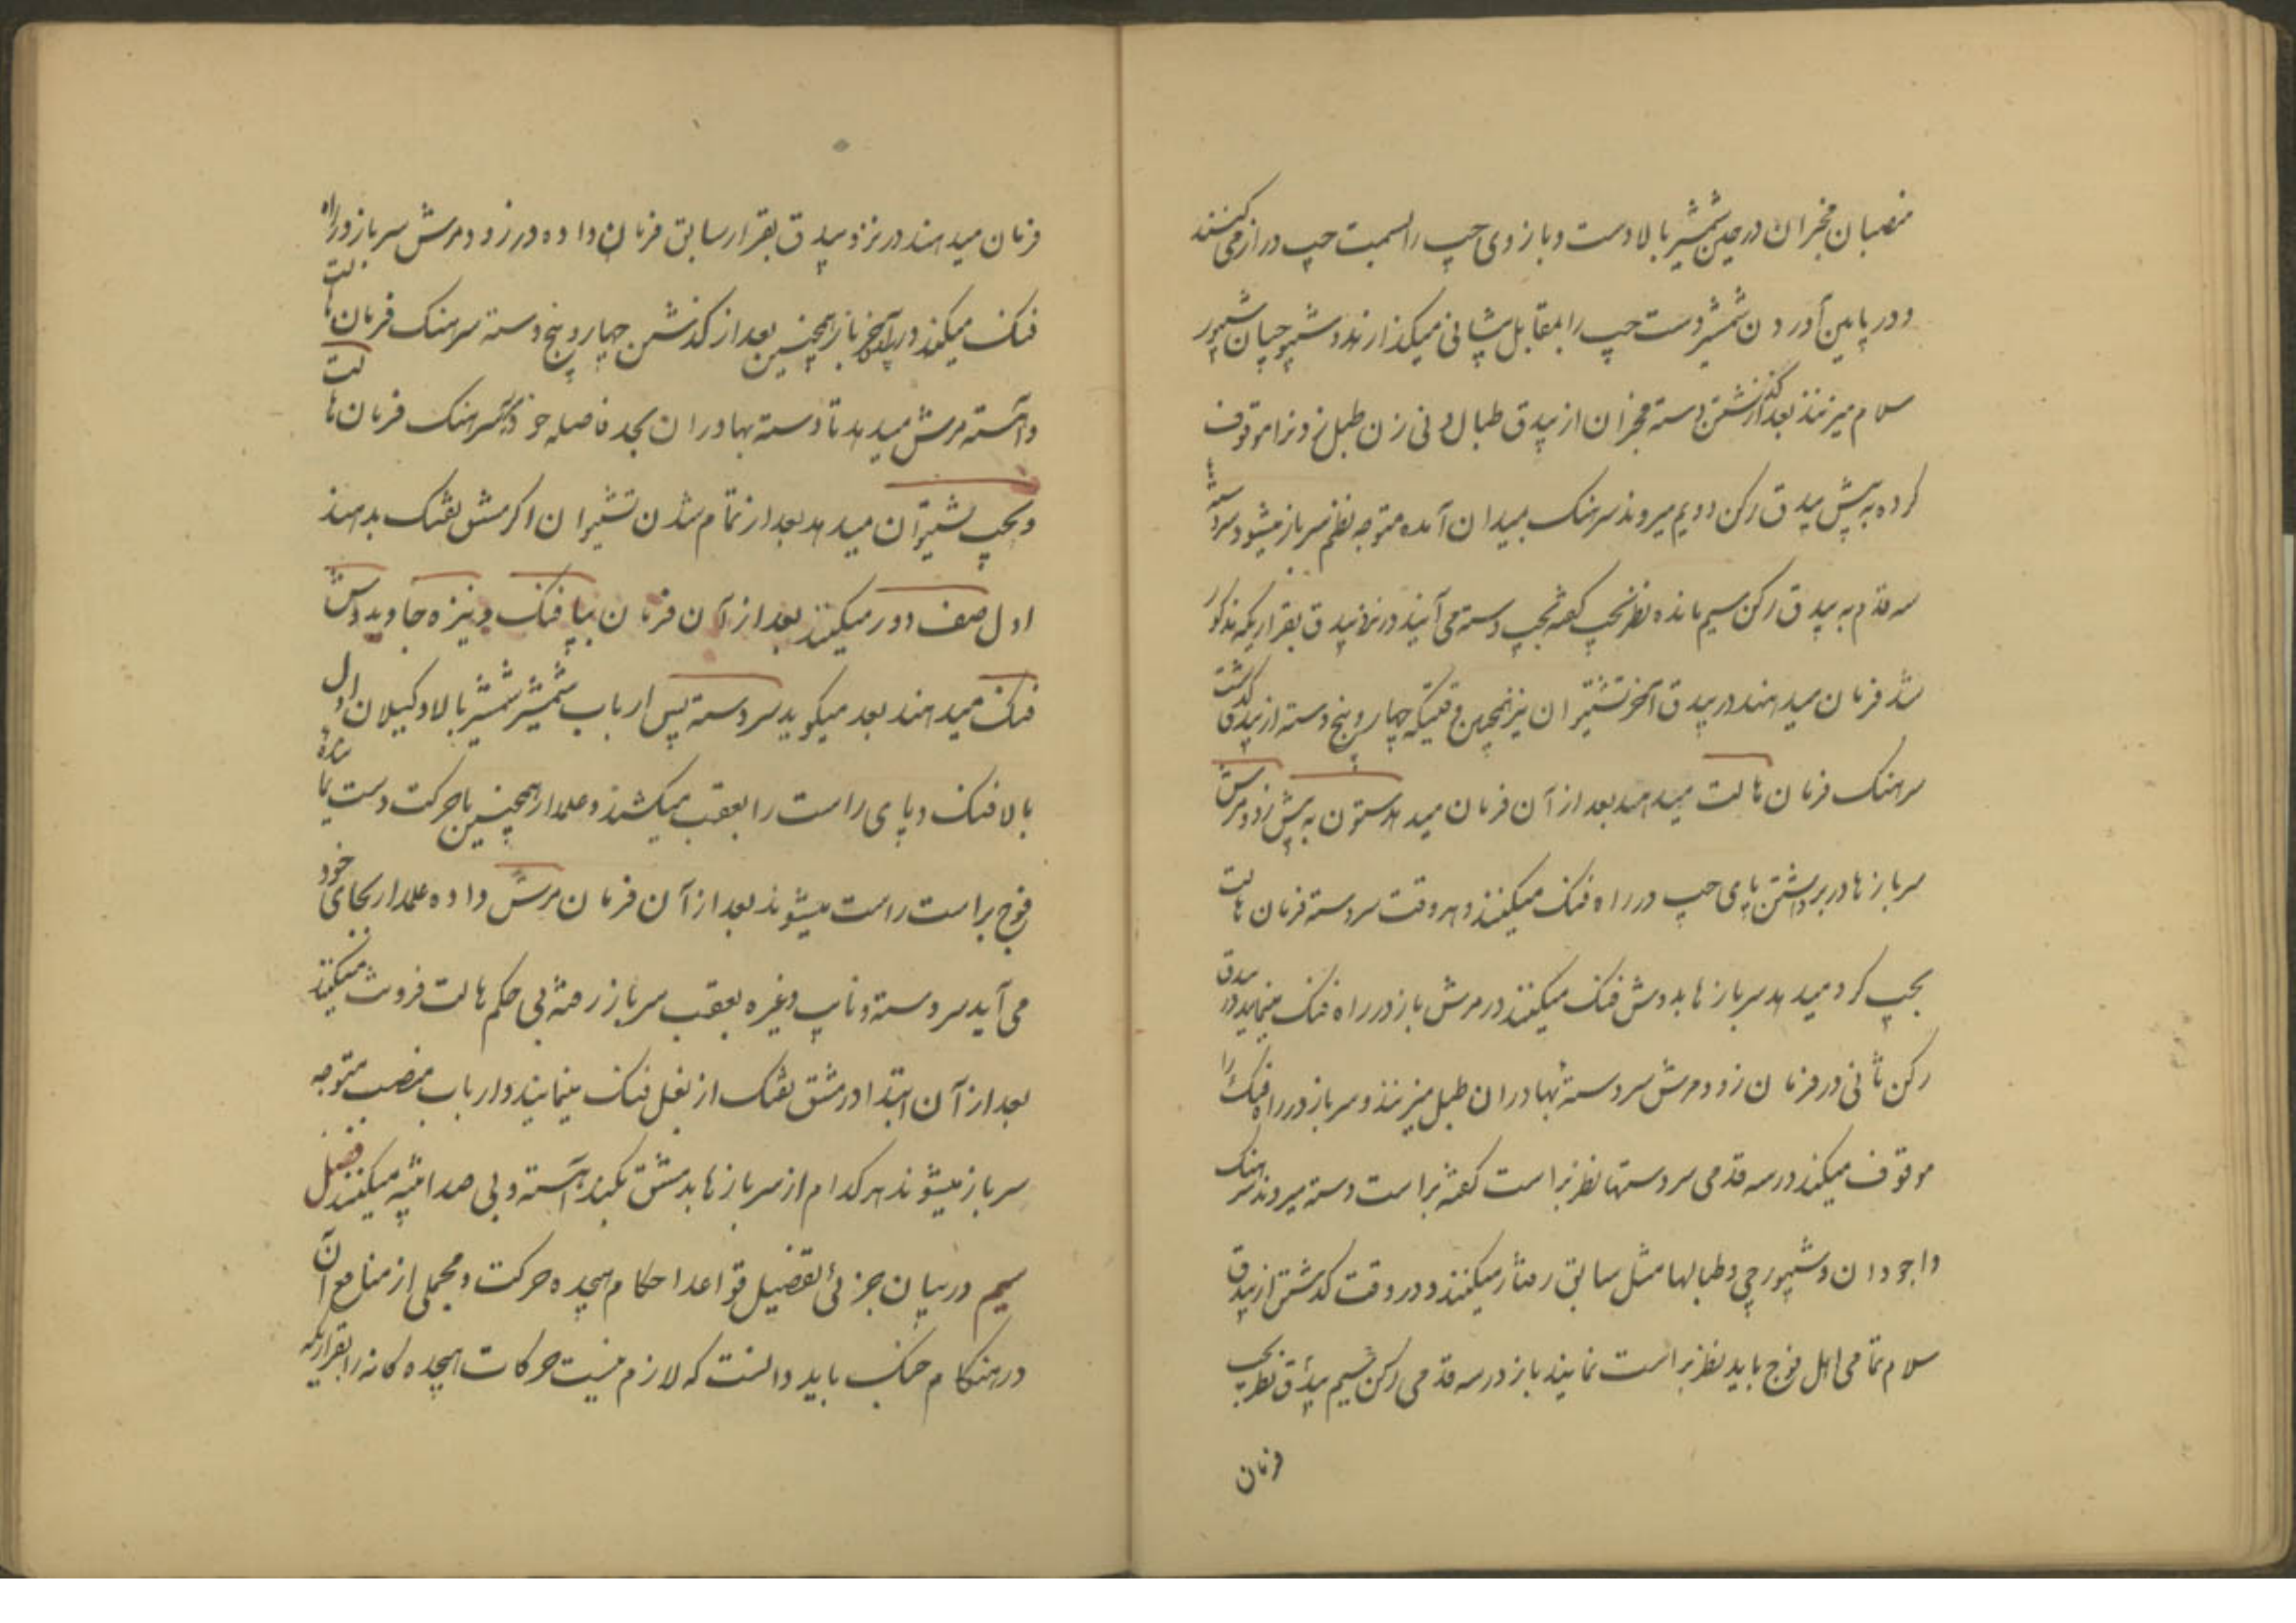 منصبان مخبران در حین شمشیر بالا دست و بازوی چپ را بسمت چپ دراز می کنند
و در پایین آوردن شمشیر دست چپ را بمقابل پیشانی میگذارند و شیپورچیان شیپور
سلام میزنند بعد از گذشتن دسته مخبران از بیدق طبال و نی زن طبل و نی را موقوف
کرده به پیش بیدق رکن دویم میروند سرهنگ بمیدان آمده متوجه نظم سرباز میشود سردسته
سه قدم به بیدق رکن سیم مانده نظر بچپ گفته بچپ دسته می آیند در نزد بیدق بقراریکه مذکور
شد فرمان میدهند در بیدق آخر تشتیران نیز همچنین وقتیکه چهار و پنج دسته از بیدق گذشت
سرهنگ فرمان هالت میدهد بعد از آن فرمان میدهد ستون به پیش زود مرش
سربازها در برداشتن پای چپ در راه فنک میکنند و هر وقت سردسته فرمان هالت
بچپ کرد میدهد سربازها بدوش فنک میکنند در مرش باز در راه فنک مینمایند در بیدق
رکن ثانی در فرمان زود مرش سردسته بهادران طبل میزنند و سرباز در راه فنک را
موقوف میکند در سه قدمی سردستها نظر براست گفته براست دسته میروند سرهنگ
واجودان و شیپورچی و طبالها مثل سابق رفتار میکنند و در وقت گذشتن از بیدق
سلام تمامی اهل فوج باید نظر براست نمایند باز در سه قدمی رکن سیم بیدق نظر بچپ
فرمان
فرمان میدهند در نزد بیدق بقرار سابق فرمان داده در زود مرش سرباز در راه
فنک میکند در بیدق آخر باز همچنین بعد از گذشتن چهار و پنج دسته سرهنگ فرمان هالت
و آهسته مرش میدهد تا دسته بهادران بحد فاصله خود دیگر سرهنگ فرمان هالت
و بچپ تشتیران میدهد بعد از تمام شدن تشتیران اگر مشق تفنک بدهند
اول صف دور میکنند بعد از آن فرمان بپا فنک و نیزه جا و بدوش
فنک میدهند بعد میگوید سردسته پس ارباب شمشیر شمشیر بالا وکیلان اول
بالا فنک و پای راست را بعقب میکشند و علمدار همچنین با حرکت دست نما شده
فوج براست راست میشوند بعد از آن فرمان مرش داده علمدار بجای خود
می آید سردسته و نایب و غیره بعقب سرباز رفته بی حکم هالت فرونت میکنند
بعد از آن ابتدا در مشق تفنک از بغل فنک مینمایند و ارباب منصب متوجه
سرباز میشوند هر کدام از سربازها بد مشق بکند آهسته و بی صدا تنبیه میکنند فصل
سیم در بیان جزئی تفصیل قواعد احکام هیجده حرکت و مجملی از منافع آن
در هنگام جنک باید دانست که لازم نیست حرکات هیجده گانه را بقراریکه